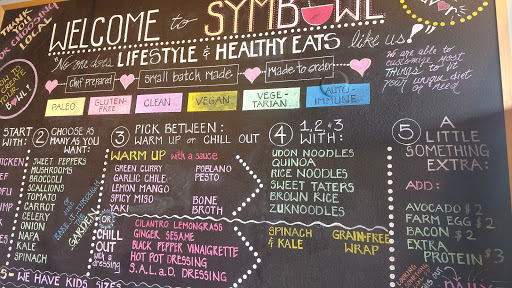 THANK YOU
FOR CHOOSING
LOCAL
WELCOME to SYMBOWL
"No one does LIFESTYLE & HEALTHY EATS like us"
chef prepared
small batch made
made to order
we are able to
customize most
THINGS to fit
your unique diet
or need
HOW TO
CREATE
BOWL!
PALEO
GLUTEN-FREE
CLEAN
VEGAN
VEGE-TARIAN
AUTO-IMMUNE
START WITH:
2 CHOOSE AS MANY AS YOU WANT:
SWEET PEPPERS
MUSHROOMS
BROCCOLI
SCALLIONS
TOMATO
CARROT
CELERY
ONION
NAPA
KALE
SPINACH
GARDEN
3 PICK BETWEEN:
WARM UP or CHILL OUT
WARM UP with a sauce
GREEN CURRY
GARLIC CHILE
LEMON MANGO
SPICY MISO
YAKI
POBLANO
PESTO
BONE
BROTH
FOR CHILL OUT with a dressing
CILANTRO LEMONGRASS
GINGER SESAME
BLACK PEPPER VINAIGRETTE
HOT POT DRESSING
S.A.L.a.D. DRESSING
4 1, 2, & 3 WITH:
UDON NOODLES
QUINOA
RICE NOODLES
SWEET TATERS
BROWN RICE
ZUKNOODLES
SPINACH
& KALE
GRAIN-FREE
WRAP
5 A LITTLE SOMETHING EXTRA:
ADD:
AVOCADO $2
FARM EGG $2
BACON $2
EXTRA
PROTEIN $3
WE HAVE KIDS SIZES